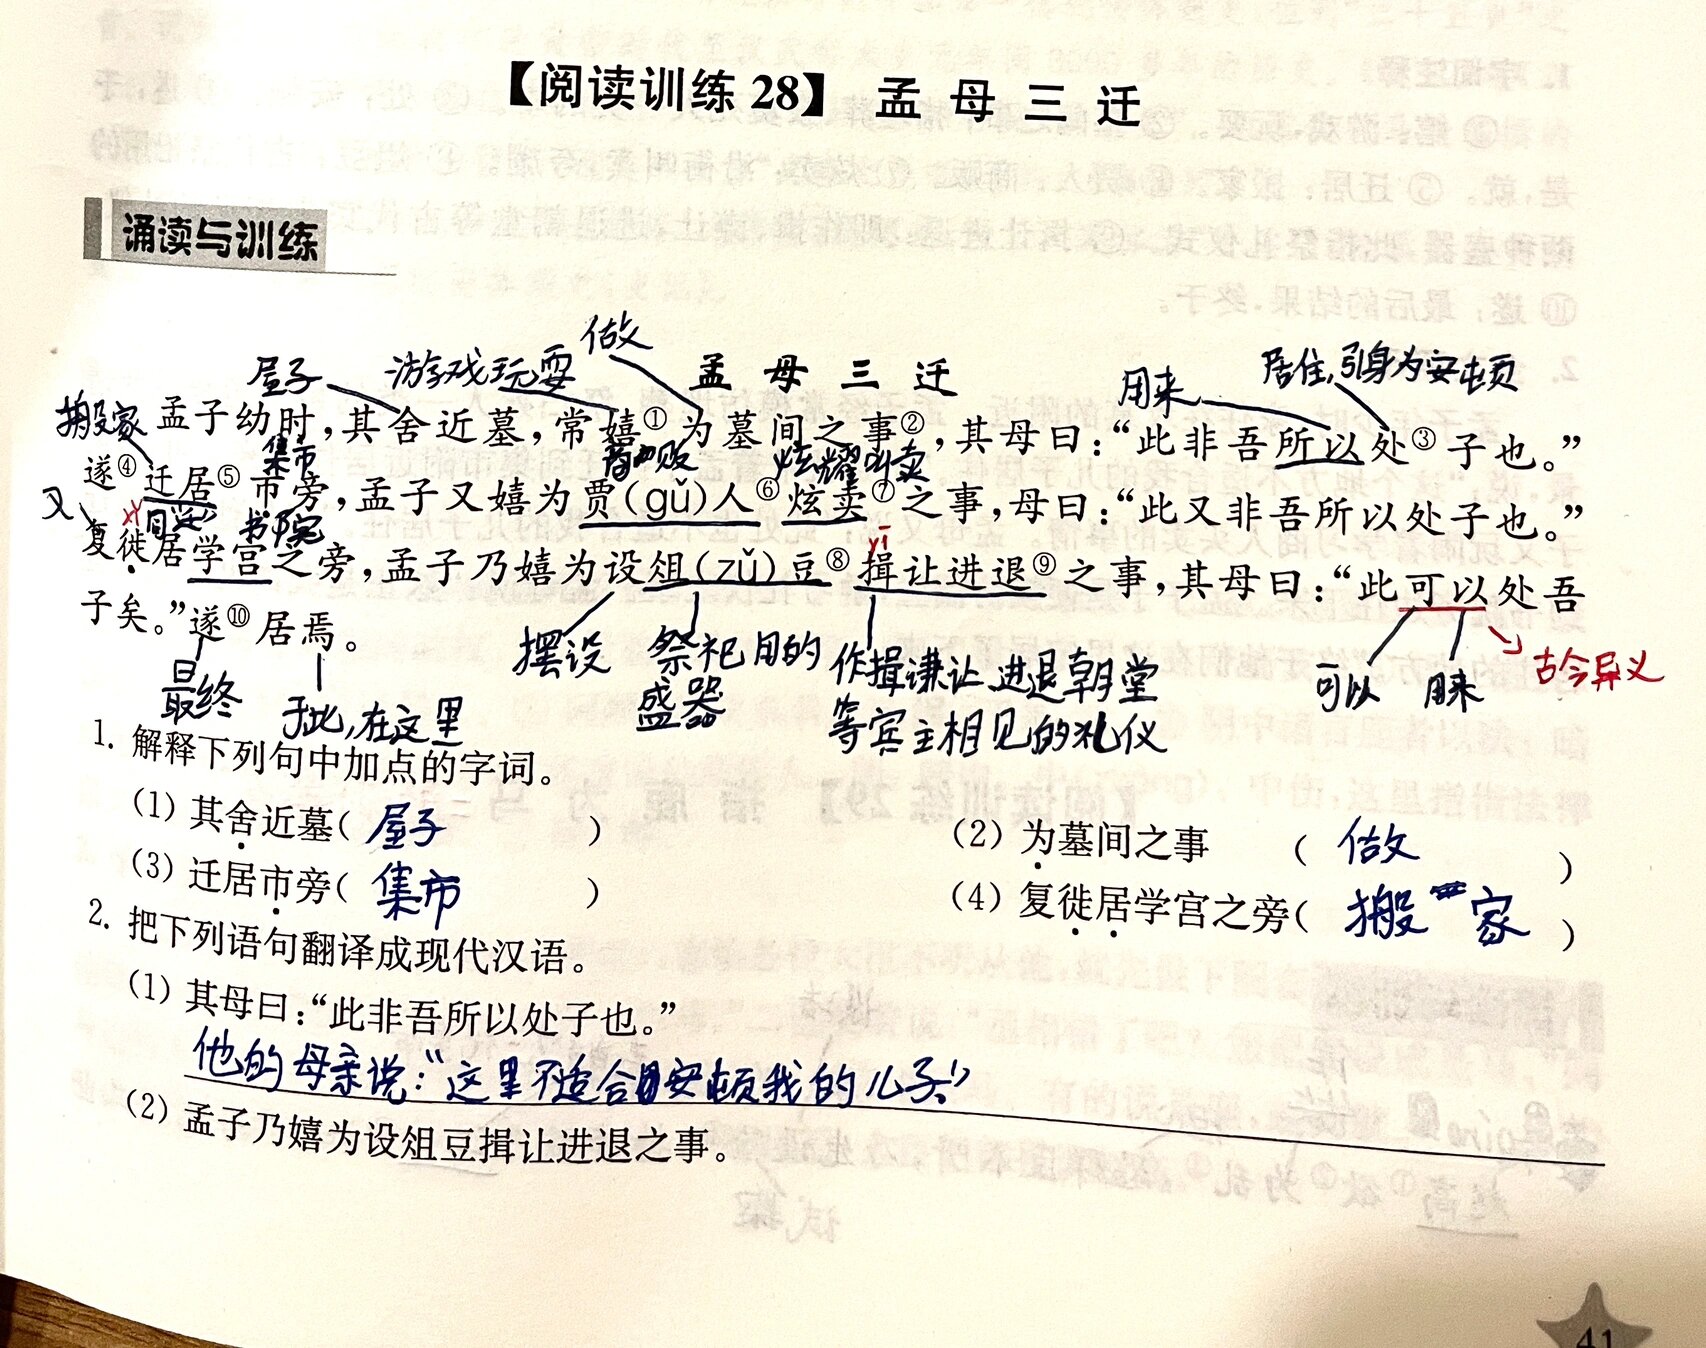 【阅读训练 28】 孟 母 三 迁
诵读与训练
做
屋子 游戏玩耍 孟 母 三 迁 用来 居住,引身为安顿
搬家 孟子幼时，其舍近墓，常嬉①为墓间之事②，其母曰：“此非吾所以处③子也。”
集市 商贩 炫耀叫卖
遂④迁居⑤市旁，孟子又嬉为贾(gǔ)人⑥炫卖⑦之事，母曰：“此又非吾所以处子也。”
又 xǐ 同“迁” 书院 yī
复徙居学宫之旁，孟子乃嬉为设俎(zǔ)豆⑧揖让进退⑨之事，其母曰：“此可以处吾
子矣。”遂⑩居焉。
最终 于此,在这里 摆设 祭祀用的 作揖谦让 进退朝堂 可以 用来 古今异义
盛器 等宾主相见的礼仪
1. 解释下列句中加点的字词。
(1) 其舍近墓( 屋子 ) (2) 为墓间之事 ( 做 )
(3) 迁居市旁( 集市 ) (4) 复徙居学宫之旁( 搬家 )
2. 把下列语句翻译成现代汉语。
(1) 其母曰：“此非吾所以处子也。”
他的母亲说：“这里不适合安顿我的儿子。”
(2) 孟子乃嬉为设俎豆揖让进退之事。
41